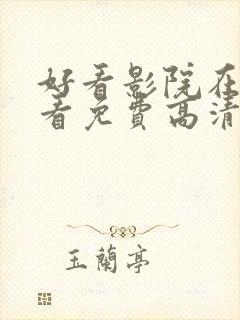 好看影院在
看免费高清
玉蘭亭